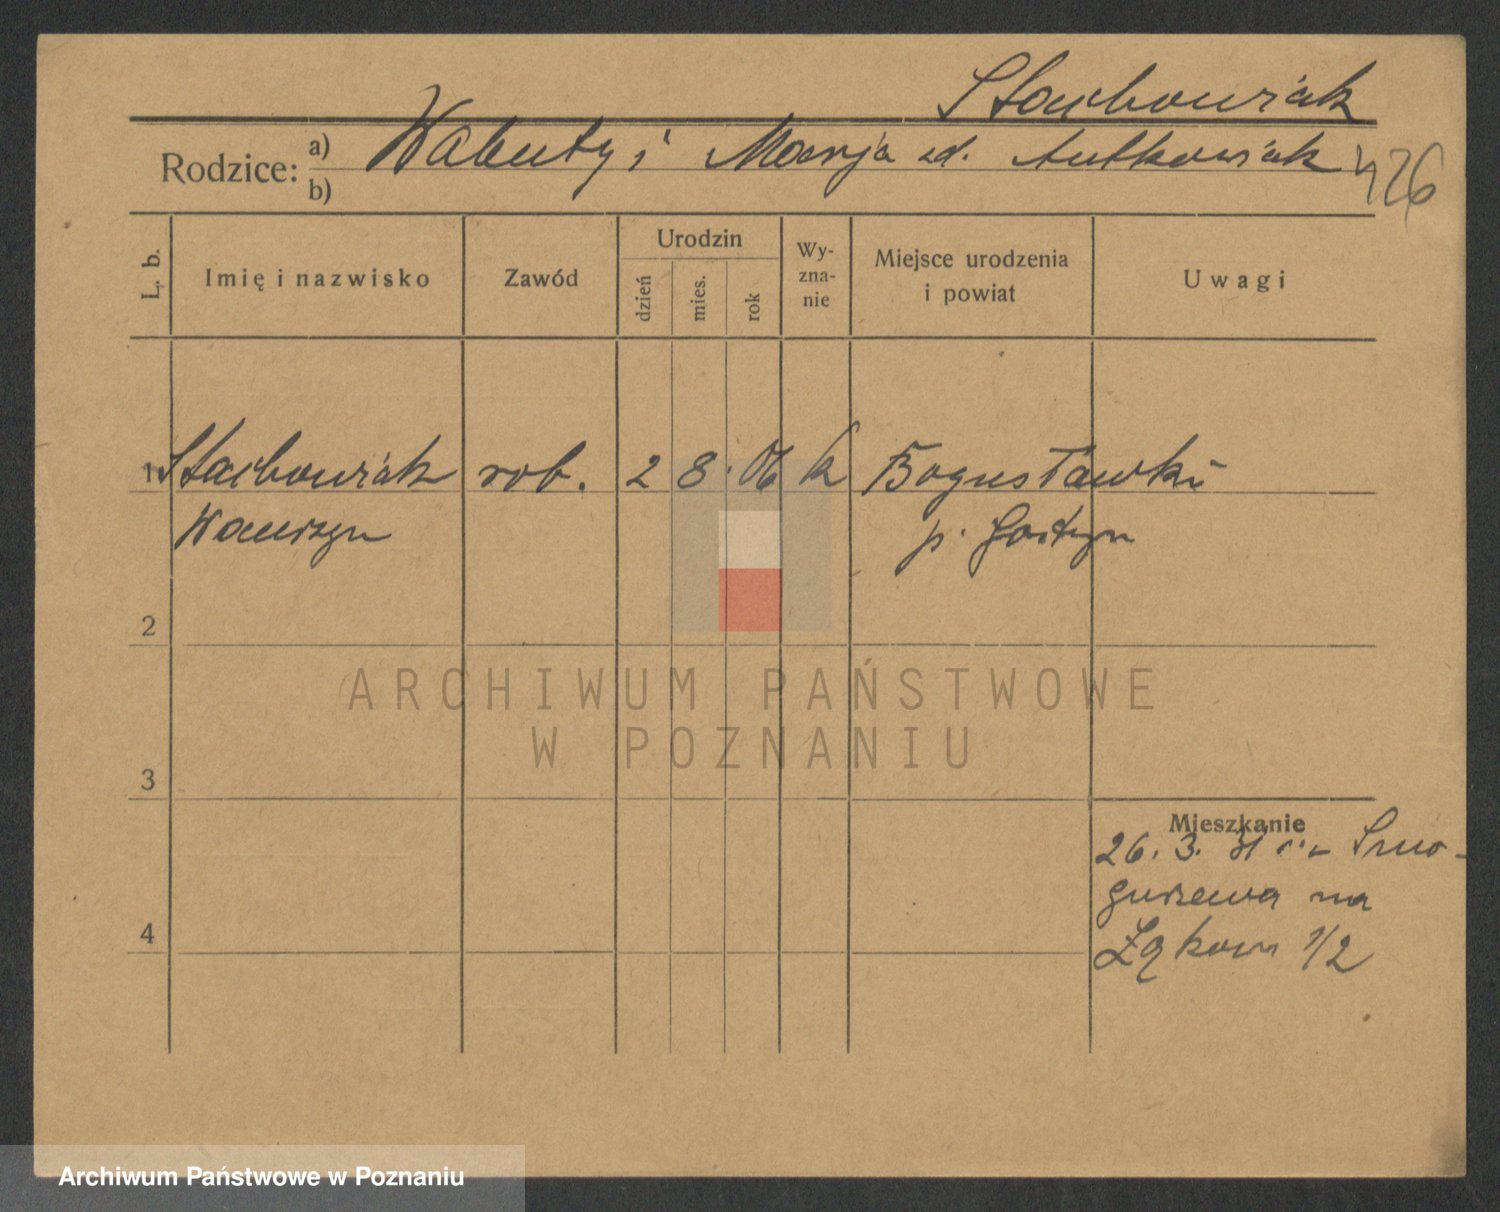 Stachowiak
Rodzice: a) Walenty i Marja zd. Antkowiak 426
b)
L. b. Imię i nazwisko Zawód Urodzin dzień mies. rok Wy-zna-nie Miejsce urodzenia i powiat Uwagi
1 Stachowiak rob. 2 8. 06 k Bogusławki
Wawrzyn p. Gostyn
2
ARCHIWUM PAŃSTWOWE
W POZNANIU
3
Mieszkanie
26. 3. 31 Smo-
gorzewa na
Łąkowa 1/2
4
Archiwum Państwowe w Poznaniu